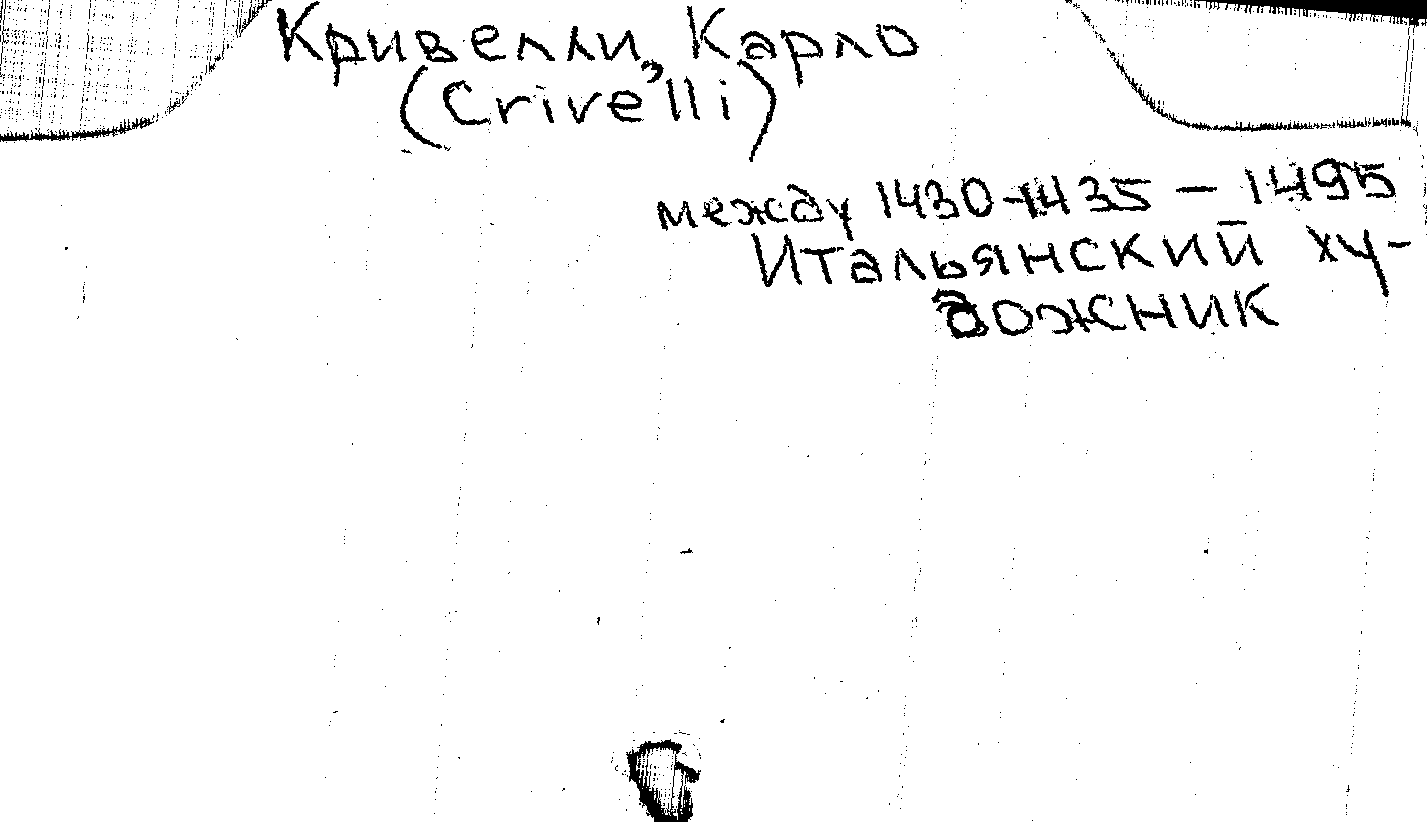 Кривелли, Карло
(Crivelli)
между 1430-1435 — 1495
Итальянский ху-
дожник